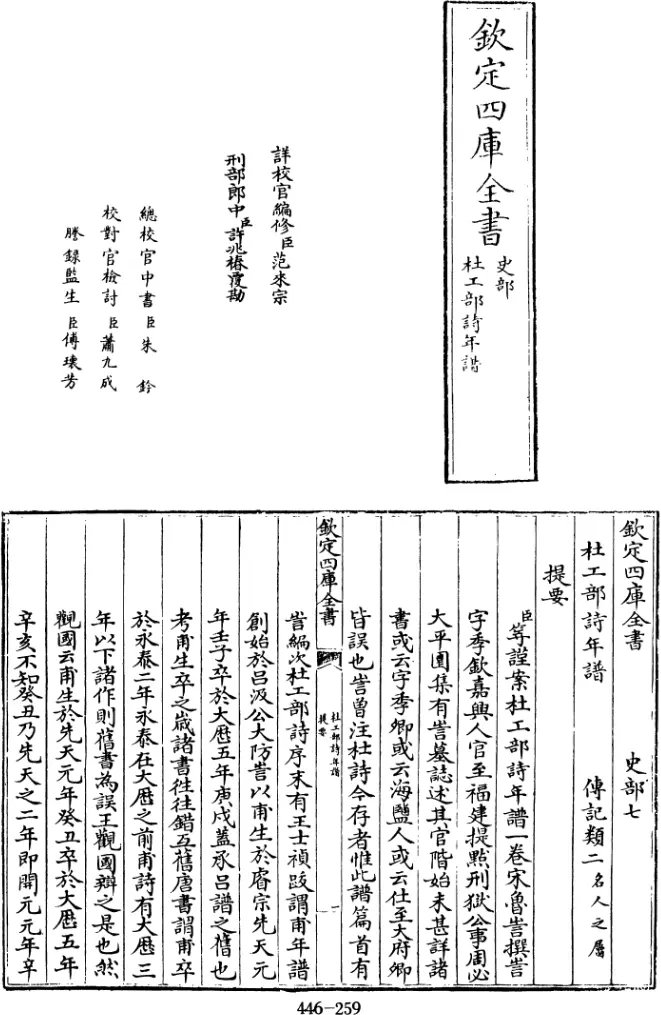 欽定四庫全書
史部
杜工部詩年譜
詳校官編修臣范來宗
刑部郎中臣許兆椿覆勘
總校官中書臣朱鈐
校對官檢討臣蕭九成
謄錄監生臣傅瓌芳
欽定四庫全書 史部七
杜工部詩年譜 傳記類二名人之屬
提要
臣等謹案杜工部詩年譜一卷宋魯訔撰訔
字季欽嘉興人官至福建提㸃刑獄公事周必
大平園集有訔墓誌述其官階始末甚詳諸
書或云字季卿或云海鹽人或云仕至大府卿
皆誤也訔曽注杜詩今存者惟此譜篇首有
欽定四庫全書 杜工部詩年譜 提要 一
訔編次杜工部詩序末有王士禎跋謂甫年譜
創始於吕汲公大防訔以甫生於睿宗先天元
年壬子卒於大厯五年庚戌葢承吕譜之舊也
考甫生卒之嵗諸書徃徃錯互舊唐書謂甫卒
於永泰二年永泰在大厯之前甫詩有大厯三
年以下諸作則舊書為誤王觀國辨之是也然
觀國云甫生於先天元年癸丑卒於大厯五年
辛亥不知癸丑乃先天之二年即開元元年辛
446-259